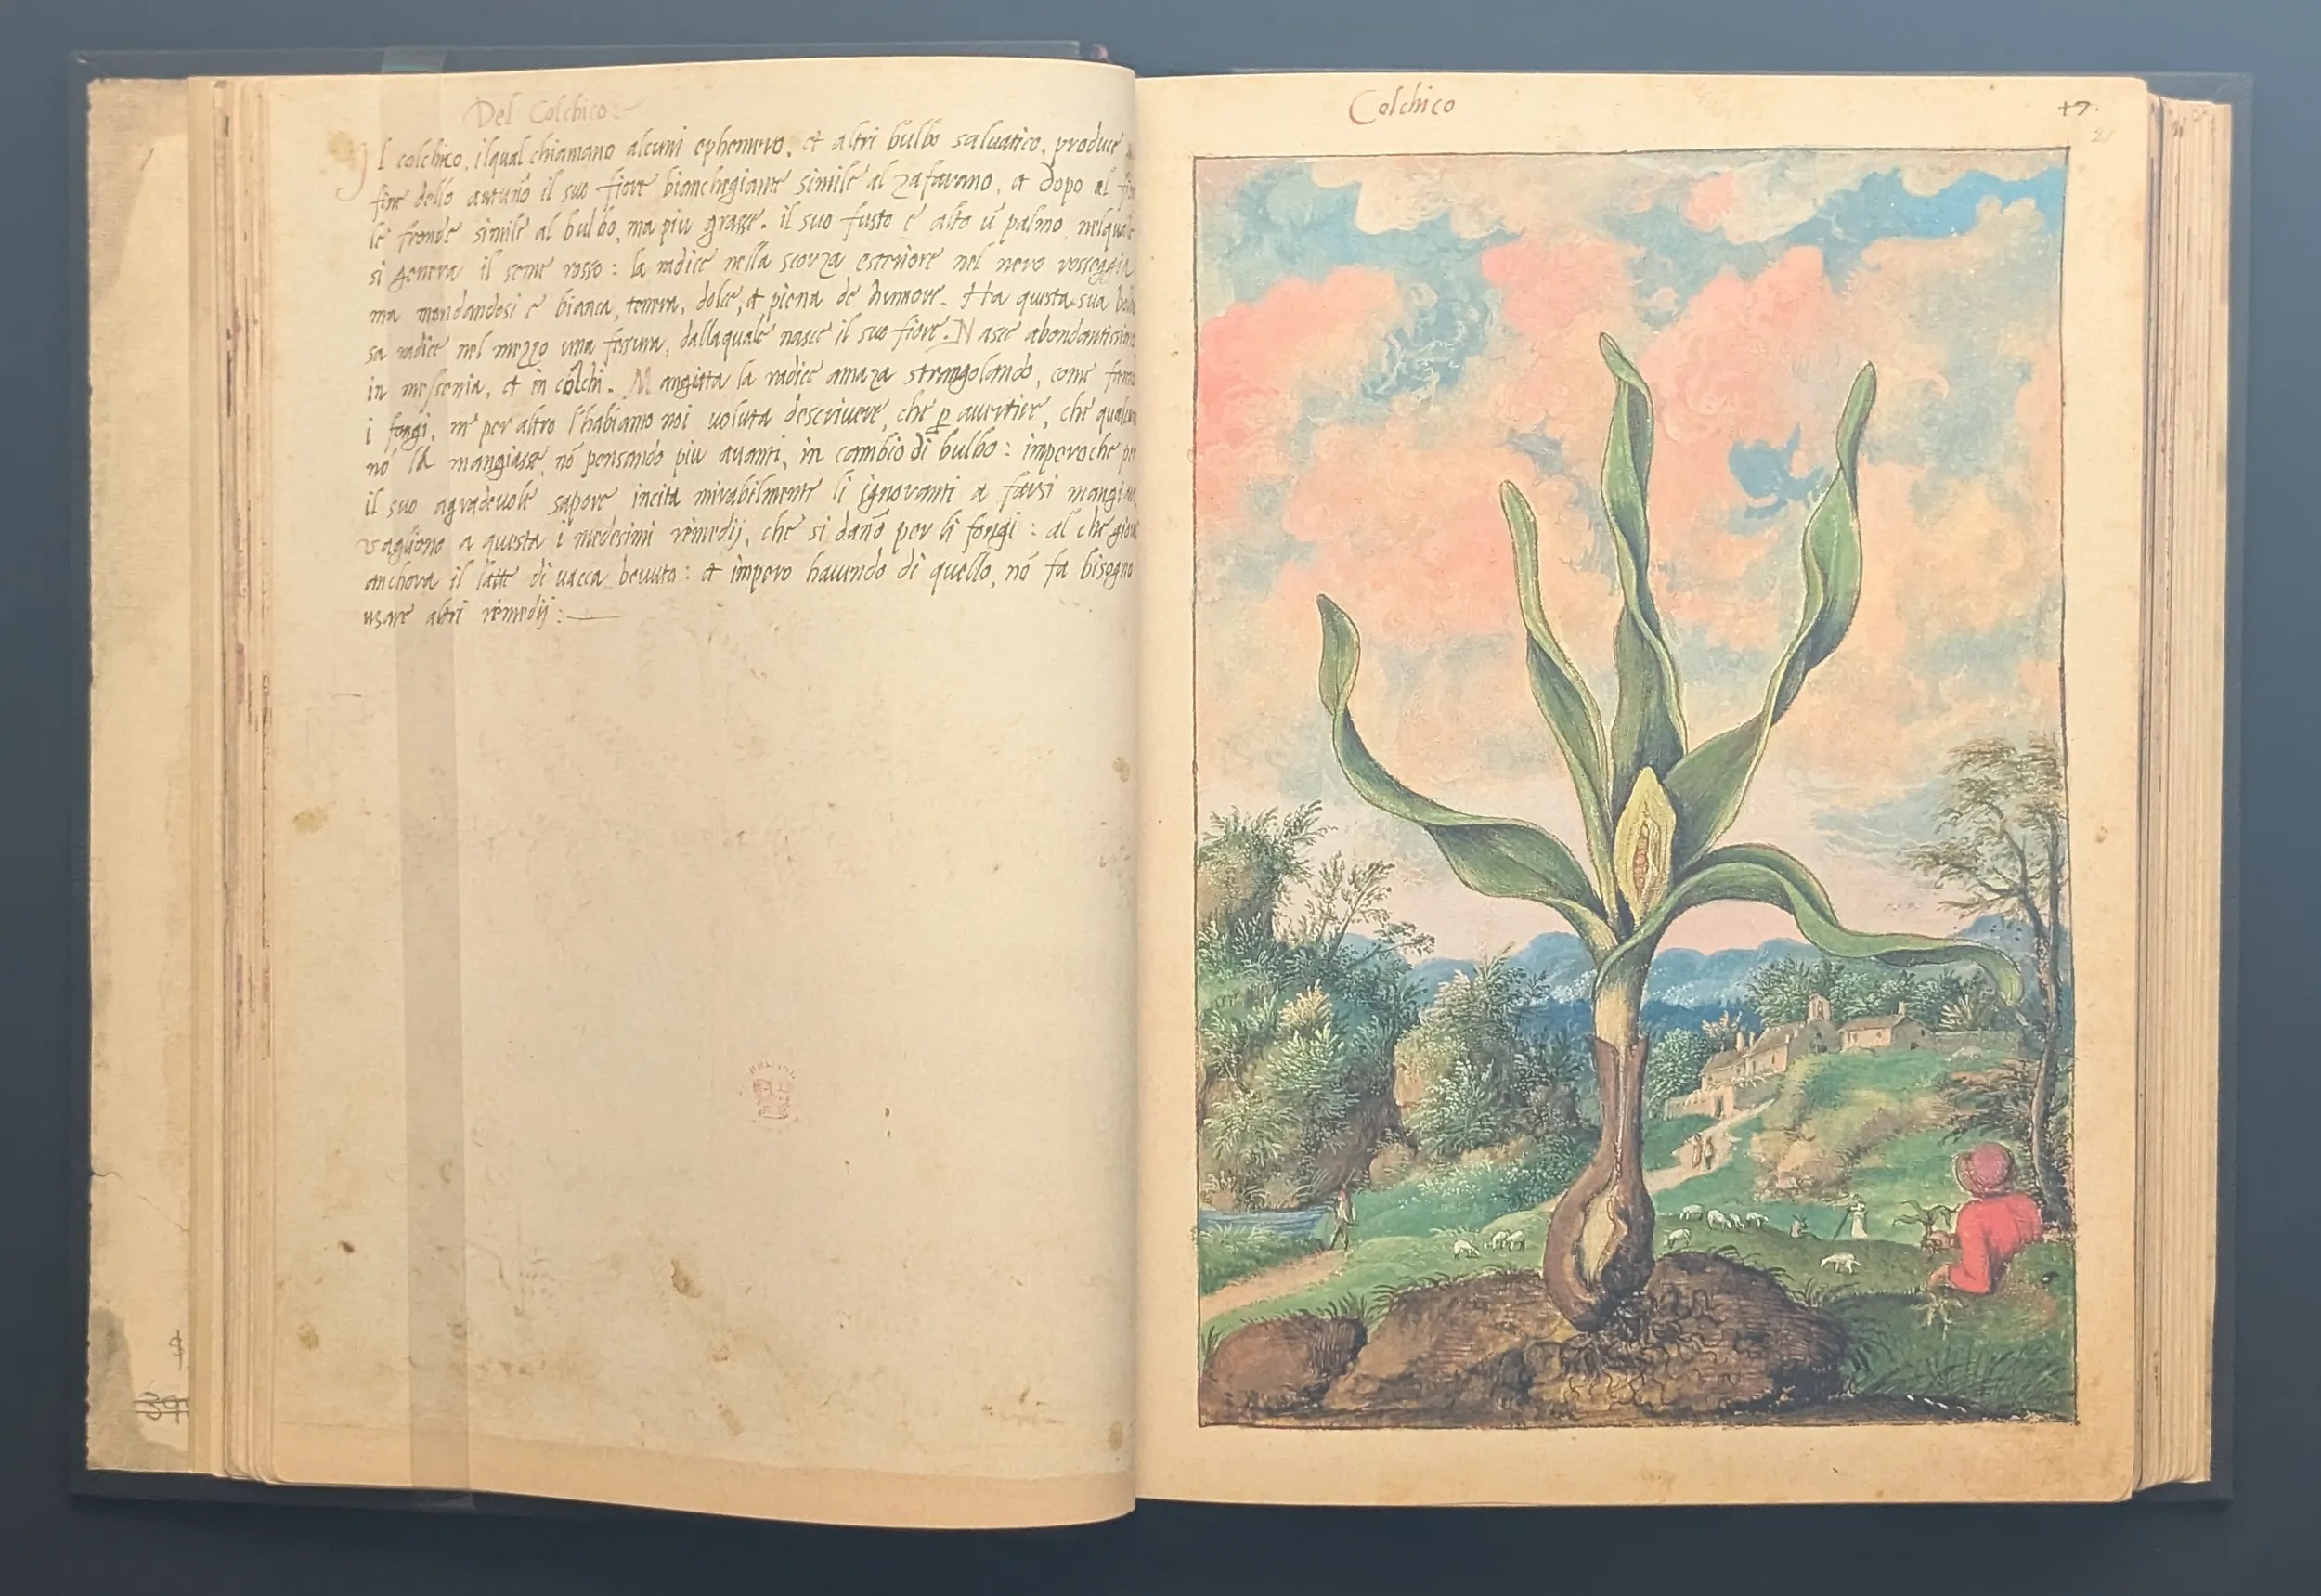 Del Colchico:
Il colchico, ilqual chiamano alcuni ephemero, et altri bulbo saluatico, produce
fine dello autuño il suo fiore bianchegiante simile al zafarano, et dopo al
le fronde simile al bulbo, ma piu grasse. il suo fusto e alto ũ palmo, nelquale
si genera il seme rosso: la radice nella scorza esteriore nel nero rosseggia
ma mondandosi e bianca, tenera, dolce, et piena de humore. Ha questa sua
sa radice nel mezzo una fessura, dallaquale nasce il suo fiore. Nasce abondantissimo
in messenia, et in colchi. Mangiata la radice amaza strangolando, come fano
i fongi, ne per altro l'habiamo noi voluta descrivere, che p auertire, che qualcu
nõ la mangiasse, nõ pensando piu auanti, in cambio di bulbo: imperoche per
il suo agradeuole sapore incita mirabilmente li ignoranti a farsi mangiare
vagliono a questa i medesimi remedij, che si dano per li fongi: al che gioua
anchora il latte di vacca beuuto: et impero hauendo di quello, nõ fa bisogno
usare altri remedij:
39
Colchico
17.
21